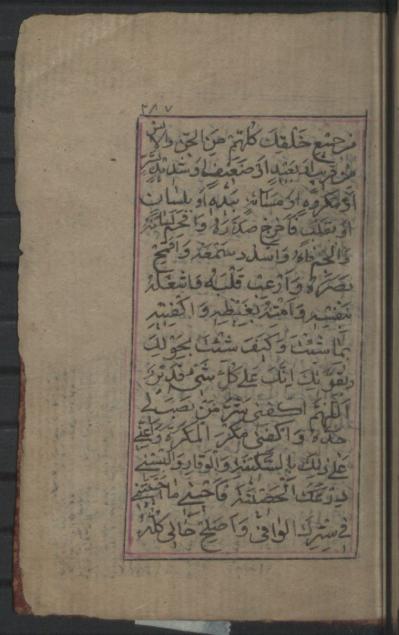 ٢٨٧
من جميع خلقك كلهم من الجن والانس
من قريب او بعيد او ضعيف او شديد
او مكروه او مساءة بيده او بلسان
او بقلب فاخرج صدره وافحم لسانه
واسدد سمعه واقمح
بصره وارعب قلبه واشغله
بنفسه وامته بغيظه واكفنيه
بما شئت وكيف شئت بحولك
وقوتك انك على كل شئ قدير
اللهم اكفني شر من نصب لي
حده واكفني مكر المكرة واعني
على ذلك بالسكينة والوقار والبسني
درعك الحصينة واحيني ما احييتني
في سترك الواقي واصلح حالي كله